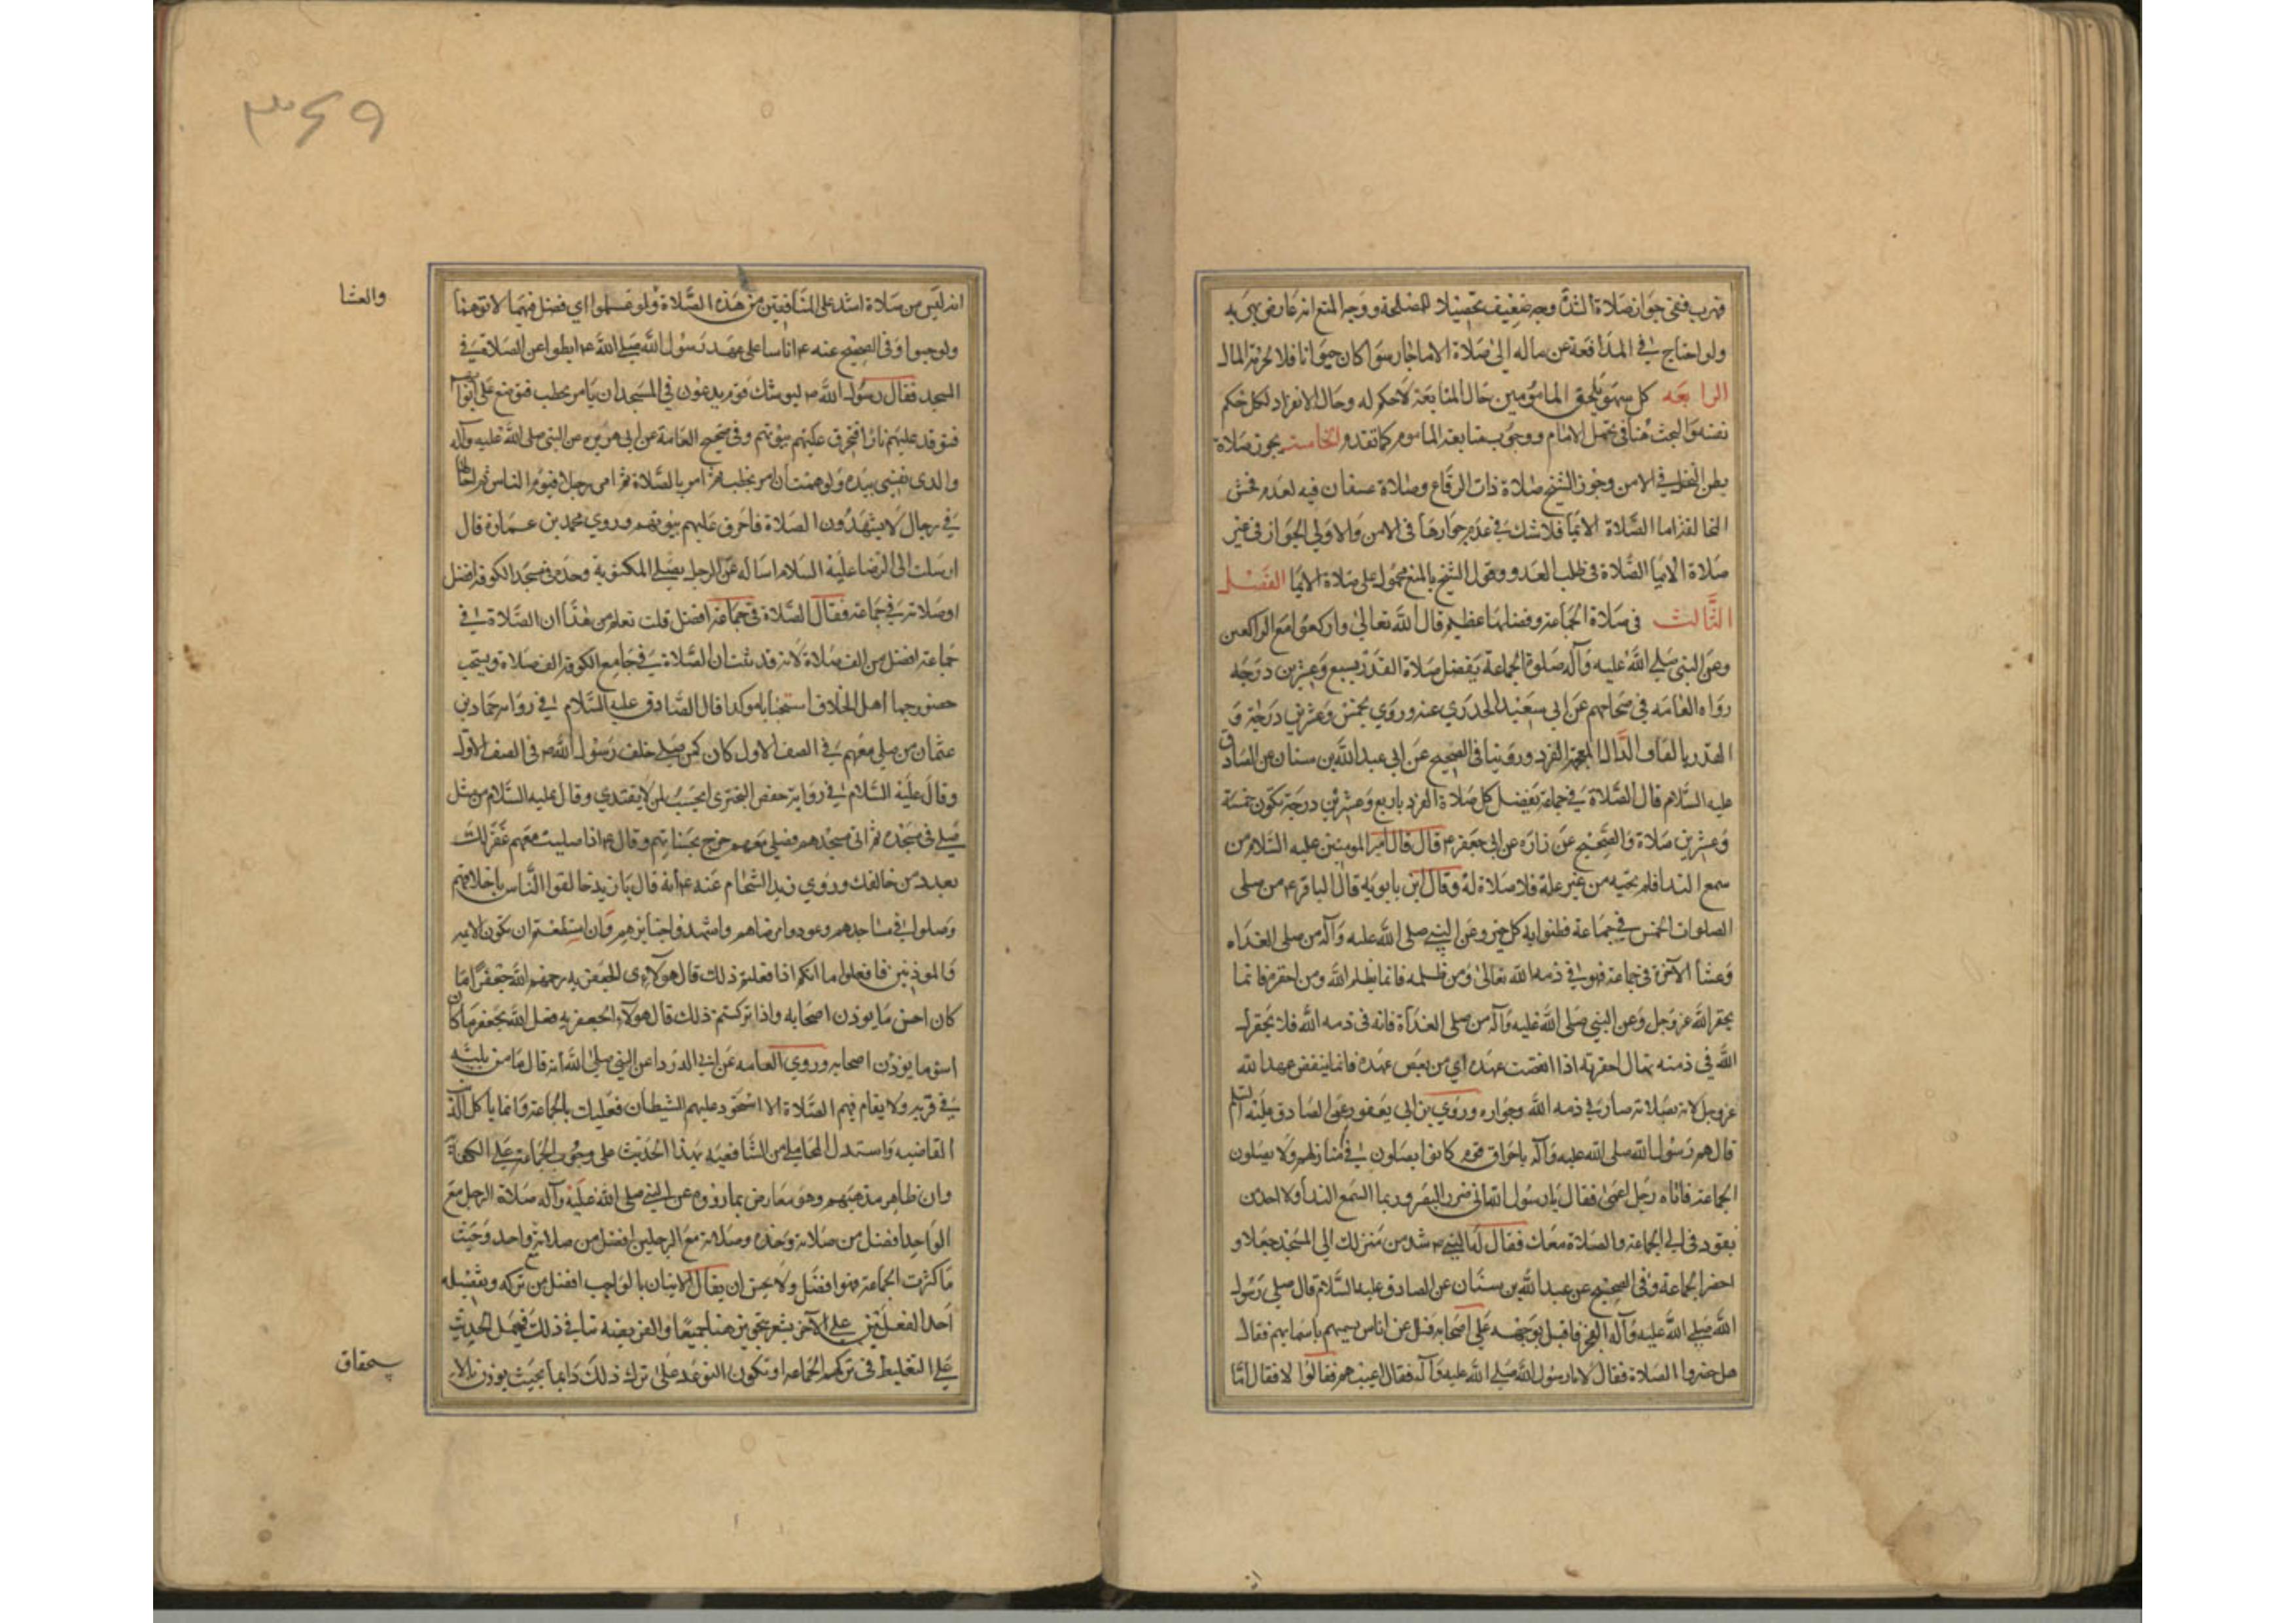 فهرب ففي جواز صلاة الشدة وجه ضعيف تحصيلا للمصلحة ووجه المنع انه عارض نهى به
ولو احتاج في المدافعة عن ماله الى صلاة الاماء جاز سوا كان حيوانا فلا لحرمة المال
الرابعه كل سهو يلحق المامومين حال المتابعة لا حكم له وحال الانفراد لكل حكم
نفسه والبحث هنا في تحمل الامام ووجوب متابعة الماموم كما تقدم الخامسة يجوز صلاة
بطن النخل في الامن وجوز الشيخ صلاة ذات الرقاع وصلاة عسفان فيه لعدم فحش
المخالفة اما الصلاة الايما فلا شك في عدم جوازها في الامن والاولى الجواز في غير
صلاة الايما الصلاة في طلب العدو وقول الشيخ بالمنع محمول على صلاة الايما الفصل
الثالث في صلاة الجماعة وفضلها عظيم قال الله تعالى واركعوا مع الراكعين
وعن النبي صلى الله عليه وآله صلوة الجماعة يفضل صلاة الفذ بسبع وعشرين درجه
رواه العامه في صحاحهم عن ابي سعيد الخدري عنه وروي بخمس وعشرين درجة و
الفذ بالفاء والذال المعجمة الفرد وروينا في الصحيح عن ابي عبد الله بن سنان عن الصادق
عليه السلام قال الصلاة في جماعة يفضل كل صلاة الفرد باربع وعشرين درجة تكون خمسة
وعشرين صلاة والصحيح عن زراره عن ابي جعفر ع قال قال امير المومنين عليه السلام من
سمع الندا فلم يجبه من غير علة فلا صلاة له وقال ابن بابويه قال الباقر ع من صلى
الصلوات الخمس في جماعة فظنوا به كل خير وعن النبي صلى الله عليه وآله من صلى الغداه
وعشا الآخرة في جماعة فهو في ذمه الله تعالى ومن ظلمه فانما يظلم الله ومن احقره فانما
يحقر الله عز وجل وعن النبي صلى الله عليه وآله من صلى الغداة فانه في ذمه الله فلا يحقرن
الله في ذمته يقال احقرته اذا انقضت عهده اي من نقض عهده فانما ينقض عهد الله
عز وجل لانه بصلاته صار في ذمه الله وجواره وروي بن ابي يعفور عن الصادق عليه السلم
قال هم رسول الله صلى الله عليه وآله باحراق قوم كانوا يصلون في منازلهم ولا يصلون
الجماعة فاتاه رجل اعمى فقال يا رسول الله اني ضرير البصر وربما اسمع الندا ولا اجد من
يقودني الى الجماعة والصلاة معك فقال له النبي ص شد من منزلك الى المسجد حبلا و
احضر الجماعة وفي الصحيح عن عبد الله بن سنان عن الصادق عليه السلام قال صلى رسول
الله صلى الله عليه وآله الفجر فاقبل بوجهه على اصحابه فسئل عن اناس يسميهم باسمايهم فقال
هل حضروا الصلاة فقال لا يا رسول الله صلى الله عليه وآله فقال اغيب هم فقالوا لا فقال اما
٣٤٩
انه ليس من صلاة اشد على المنافقين من هذه الصلاة ولو علموا اي فضل فيهما لاتوهما
والعشا
ولو حبوا وفي الصحيح عنه ع اناسا على عهد رسول الله صلى الله ع ابطوا عن الصلاة في
المسجد فقال رسول الله ص ليوشك قوم يدعون في المسجد ان يامر بحطب فتوضع على ابوابهم
فتوقد عليهم نارا فتحرق عليهم بيوتهم وفي صحيح العامة عن ابي هريره عن النبي صلى الله عليه وآله
والذي نفسي بيده ولو هممت ان امر بحطب ثم امر بالصلاة ثم امر رجلا فيؤم الناس ثم اخالف
في رجال لا يشهدون الصلاة فاحرق عليهم بيوتهم وروي محمد بن عمارة قال
ارسلت الى الرضا عليه السلام اساله عن الرجل يصلي المكتوبة وحده في مسجد الكوفه افضل
او صلاته في جماعة فقال الصلاة في جماعة افضل قلت تعلم من هذا ان الصلاة في
جماعة افضل من الف صلاة لانه قد ثبت ان الصلاة في جامع الكوفه الف صلاة ويستحب
حضور جماعة اهل الخلاف استحبابا موكدا قال الصادق عليه السلام في رواية حماد بن
عثمان من صلى معهم في الصف الاول كان كمن صلى خلف رسول الله ص في الصف الاول
وقال عليه السلام في رواية حفص البختري يحسب لمن لا يقتدي وقال عليه السلام من
صلى في مسجده ثم اتى مسجدهم فصلى معهم خرج بحسناتهم وقال ع اذا صليت معهم غفر لك
بعدد من خالفك وروي زيد الشحام عنه ع انه قال يا زيد خالقوا الناس باخلاقهم
وصلوا في مساجدهم وعودوا مرضاهم واشهدوا جنايزهم وان استطعتم ان تكون الايمه
والموذنين فافعلوا ما انكم اذا فعلتم ذلك قال هولاء الجعفريه رحمهم الله جعفرا ما
كان احسن ما يودب اصحابه واذا تركتم ذلك قال هولاء الجعفريه فعل الله بجعفر ما كان
اسوء ما يودب اصحابه وروي العامه عن ابي الدردا عن النبي صلى الله انه قال ما من ثلثه
في قريه ولا يقام فيهم الصلاة الا استحوذ عليهم الشيطان فعليك بالجماعة وانما ياكل الذئب
القاصيه واستدل المحاملي من الشافعيه بهذا الحديث على وجوب الجماعة على الكفاية
وان ظاهر مذهبهم وهو معارض بما رووه عن النبي صلى الله عليه وآله صلاة الرجل مع
الواحد افضل من صلاته وحده وصلاته مع الرجلين افضل من صلاته مع واحد وحيث
ما كثرت الجماعة فهو افضل ولا يحسن ان يقال الاتيان بالواجب افضل من تركه وتفضيله
احد الفعلين على الآخر يشعر بتجويزهما جميعا والفريضه تنافي ذلك فيحمل الحديث
على التغليظ في تركهم الجماعه او تكون التوعد على ترك ذلك دايما بحيث يوذن بالا
ستحقاق